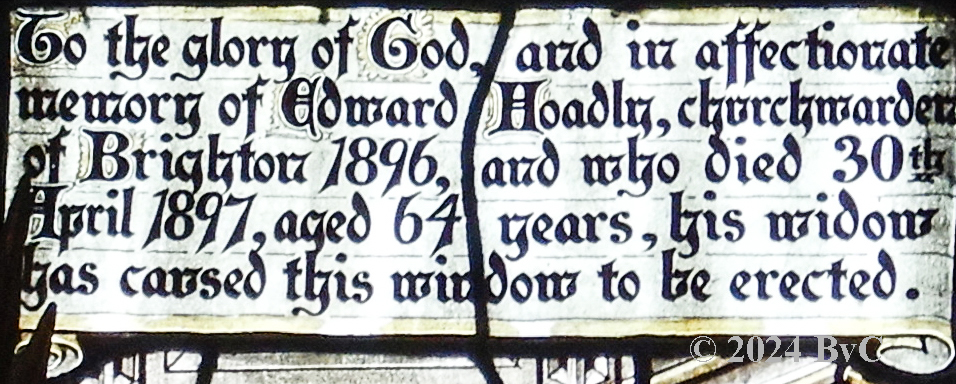 To the glory of God, and in affectionate
memory of Edward Hoadly, churchwarden
of Brighton 1896, and who died 30th
April 1897, aged 64 years, his widow
has caused this window to be erected.
© 2024 ByC